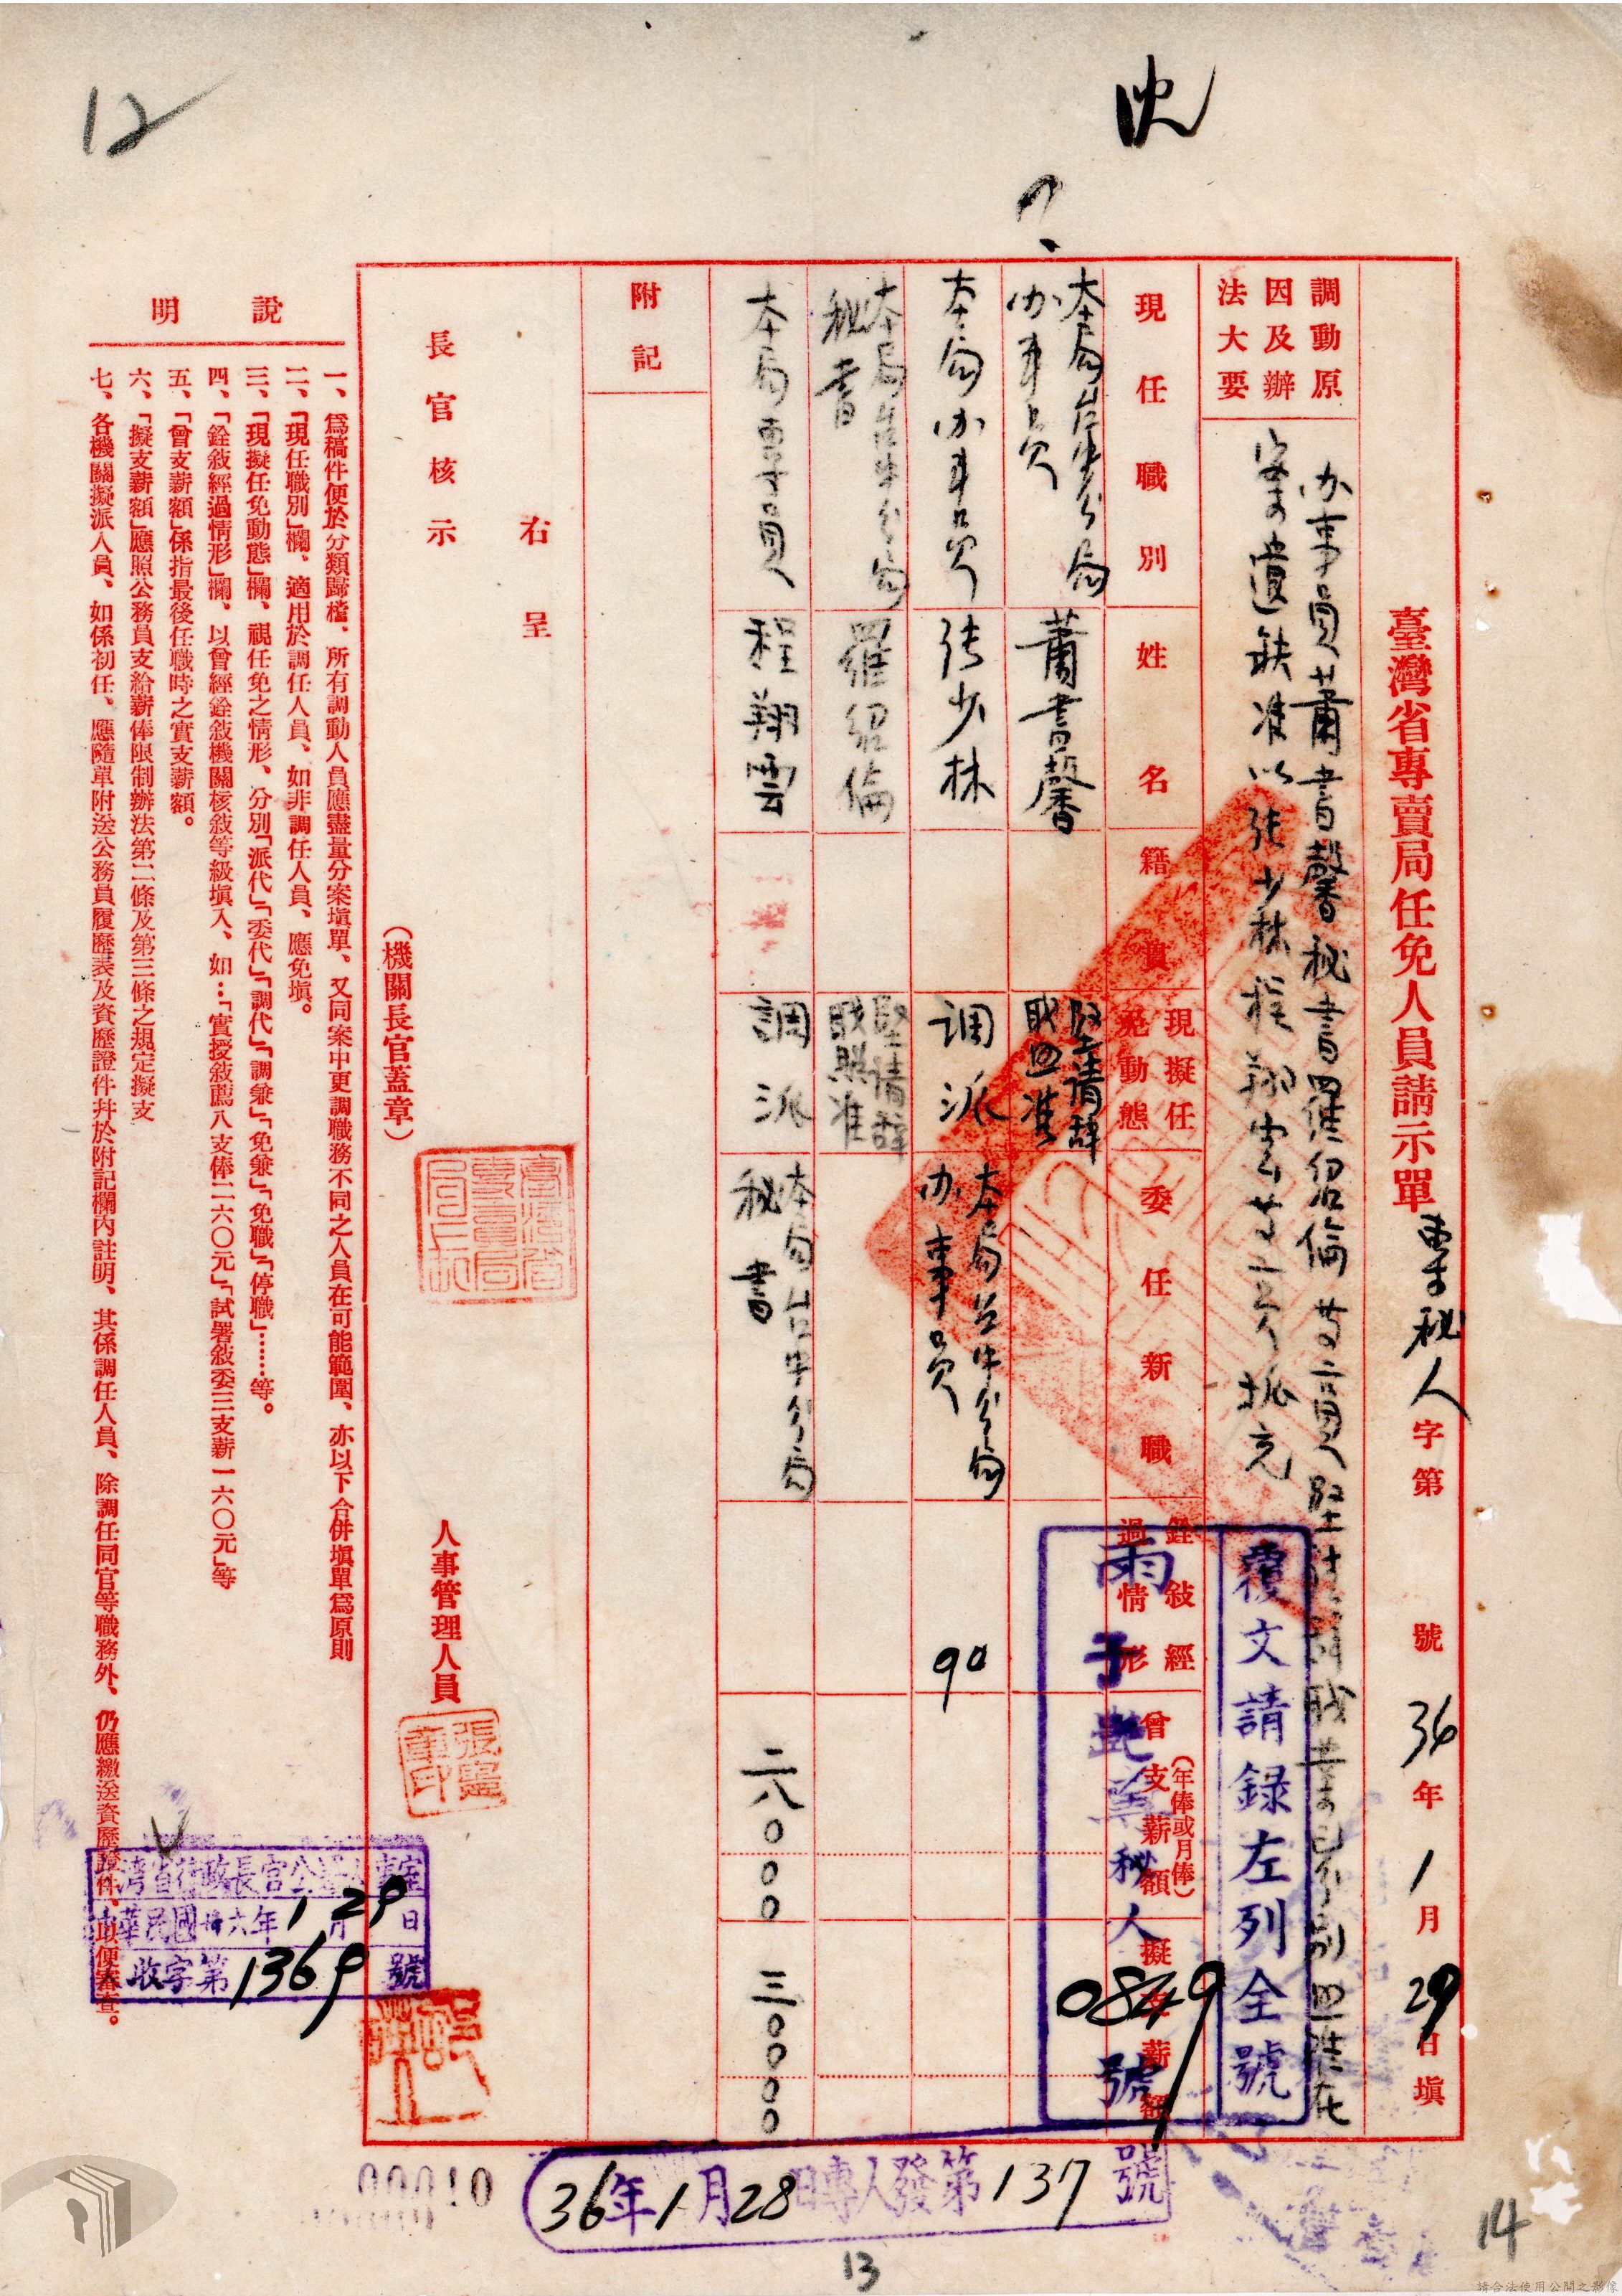 12
沈
臺灣省專賣局任免人員請示單 專秘人字第 號 36年1月29日填
調動原因及辦法大要
办事員蕭書馨秘書羅紹倫廿二員堅請辭職業已分別照准在
案遺缺准以張少林程翔雲廿二员抵充
現任職別
姓名
籍貫
現擬任免動態
委任新職
銓敍經過情形
曾支薪額（年俸或月俸）
擬支薪額
本局台中分局
办事员
蕭書馨
堅請辞
职照准
本局办事员
張少林
調派
本局台中分局
办事员
90
本局台中分局
秘書
羅紹倫
堅請辞
职照准
本局專員
程翔雲
調派
本局台中分局
秘書
二八〇〇〇
三〇〇〇〇
附記
右呈
長官核示
（機關長官蓋章）
人事管理人員
說明
一、爲稿件便於分類歸檔、所有調動人員應盡量分案塡單、又同案中更調職務不同之人員在可能範圍、亦以下合併塡單爲原則
二、「現任職別」欄、適用於調任人員、如非調任人員、應免塡。
三、「現擬任免動態」欄、視任免之情形、分別「派代」「委代」「調代」「調兼」「免兼」「免職」「停職」……等。
四、「銓敍經過情形」欄、以曾經銓敍機關核敍等級塡入、如…「實授敍薦八支俸二六〇元」「試署敍委三支薪一六〇元」等
五、「曾支薪額」係指最後任職時之實支薪額。
六、「擬支薪額」應照公務員支給薪俸限制辦法第二條及第三條之規定擬支
七、各機關擬派人員、如係初任、應隨單附送公務員履歷表及資歷證件并於附記欄內註明、其係調任人員、除調任同官等職務外、仍應繳送資歷證件、以便審查。
覆文請録左列全號
秘人
0849號
灣省行政長官公署人事室
中華民國卅六年1月29日
收字第1369號
36年1月28日專人發第137號
00010
13
14
請合法使用公開之影像